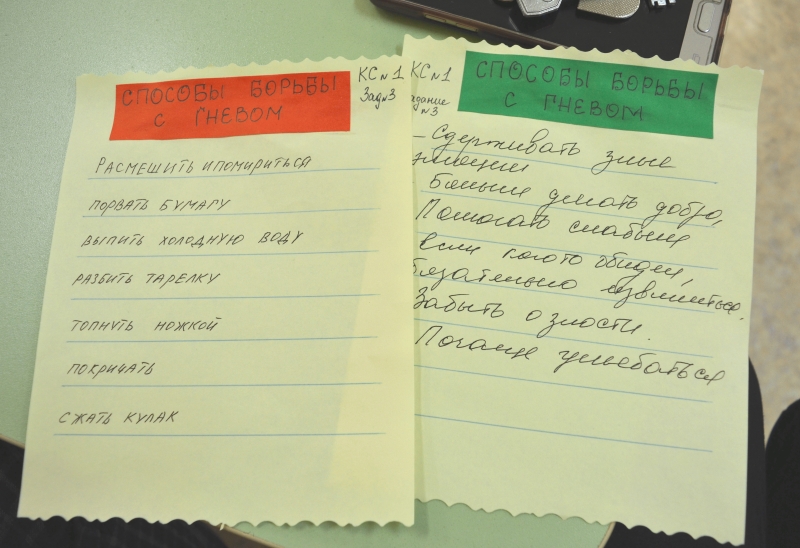 СПОСОБЫ БОРЬБЫ
С ГНЕВОМ
КС №1
Зад №3
РАСМЕШИТЬ И ПОМИРИТЬСЯ
ПОРВАТЬ БУМАГУ
ВЫПИТЬ ХОЛОДНУЮ ВОДУ
РАЗБИТЬ ТАРЕЛКУ
ТОПНУТЬ НОЖКОЙ
ПОКРИЧАТЬ
СЖАТЬ КУЛАК
КС №1
адание
№3
СПОСОБЫ БОРЬБЫ
С ГНЕВОМ
– Сдерживать злые
эмоции
Больше делать добра,
Помогать слабым
если кого то обидел,
бязательно извиниться.
Забыть о злости.
Почаще улыбаться